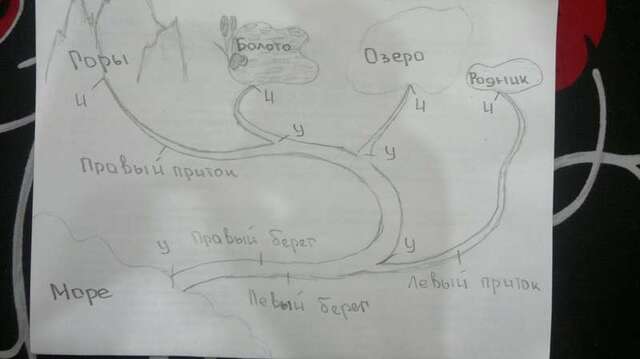 Горы
Болото
Озеро
Родник
И
И
И
И
У
У
Правый приток
У
Правый берег
У
Море
Левый берег
Левый приток